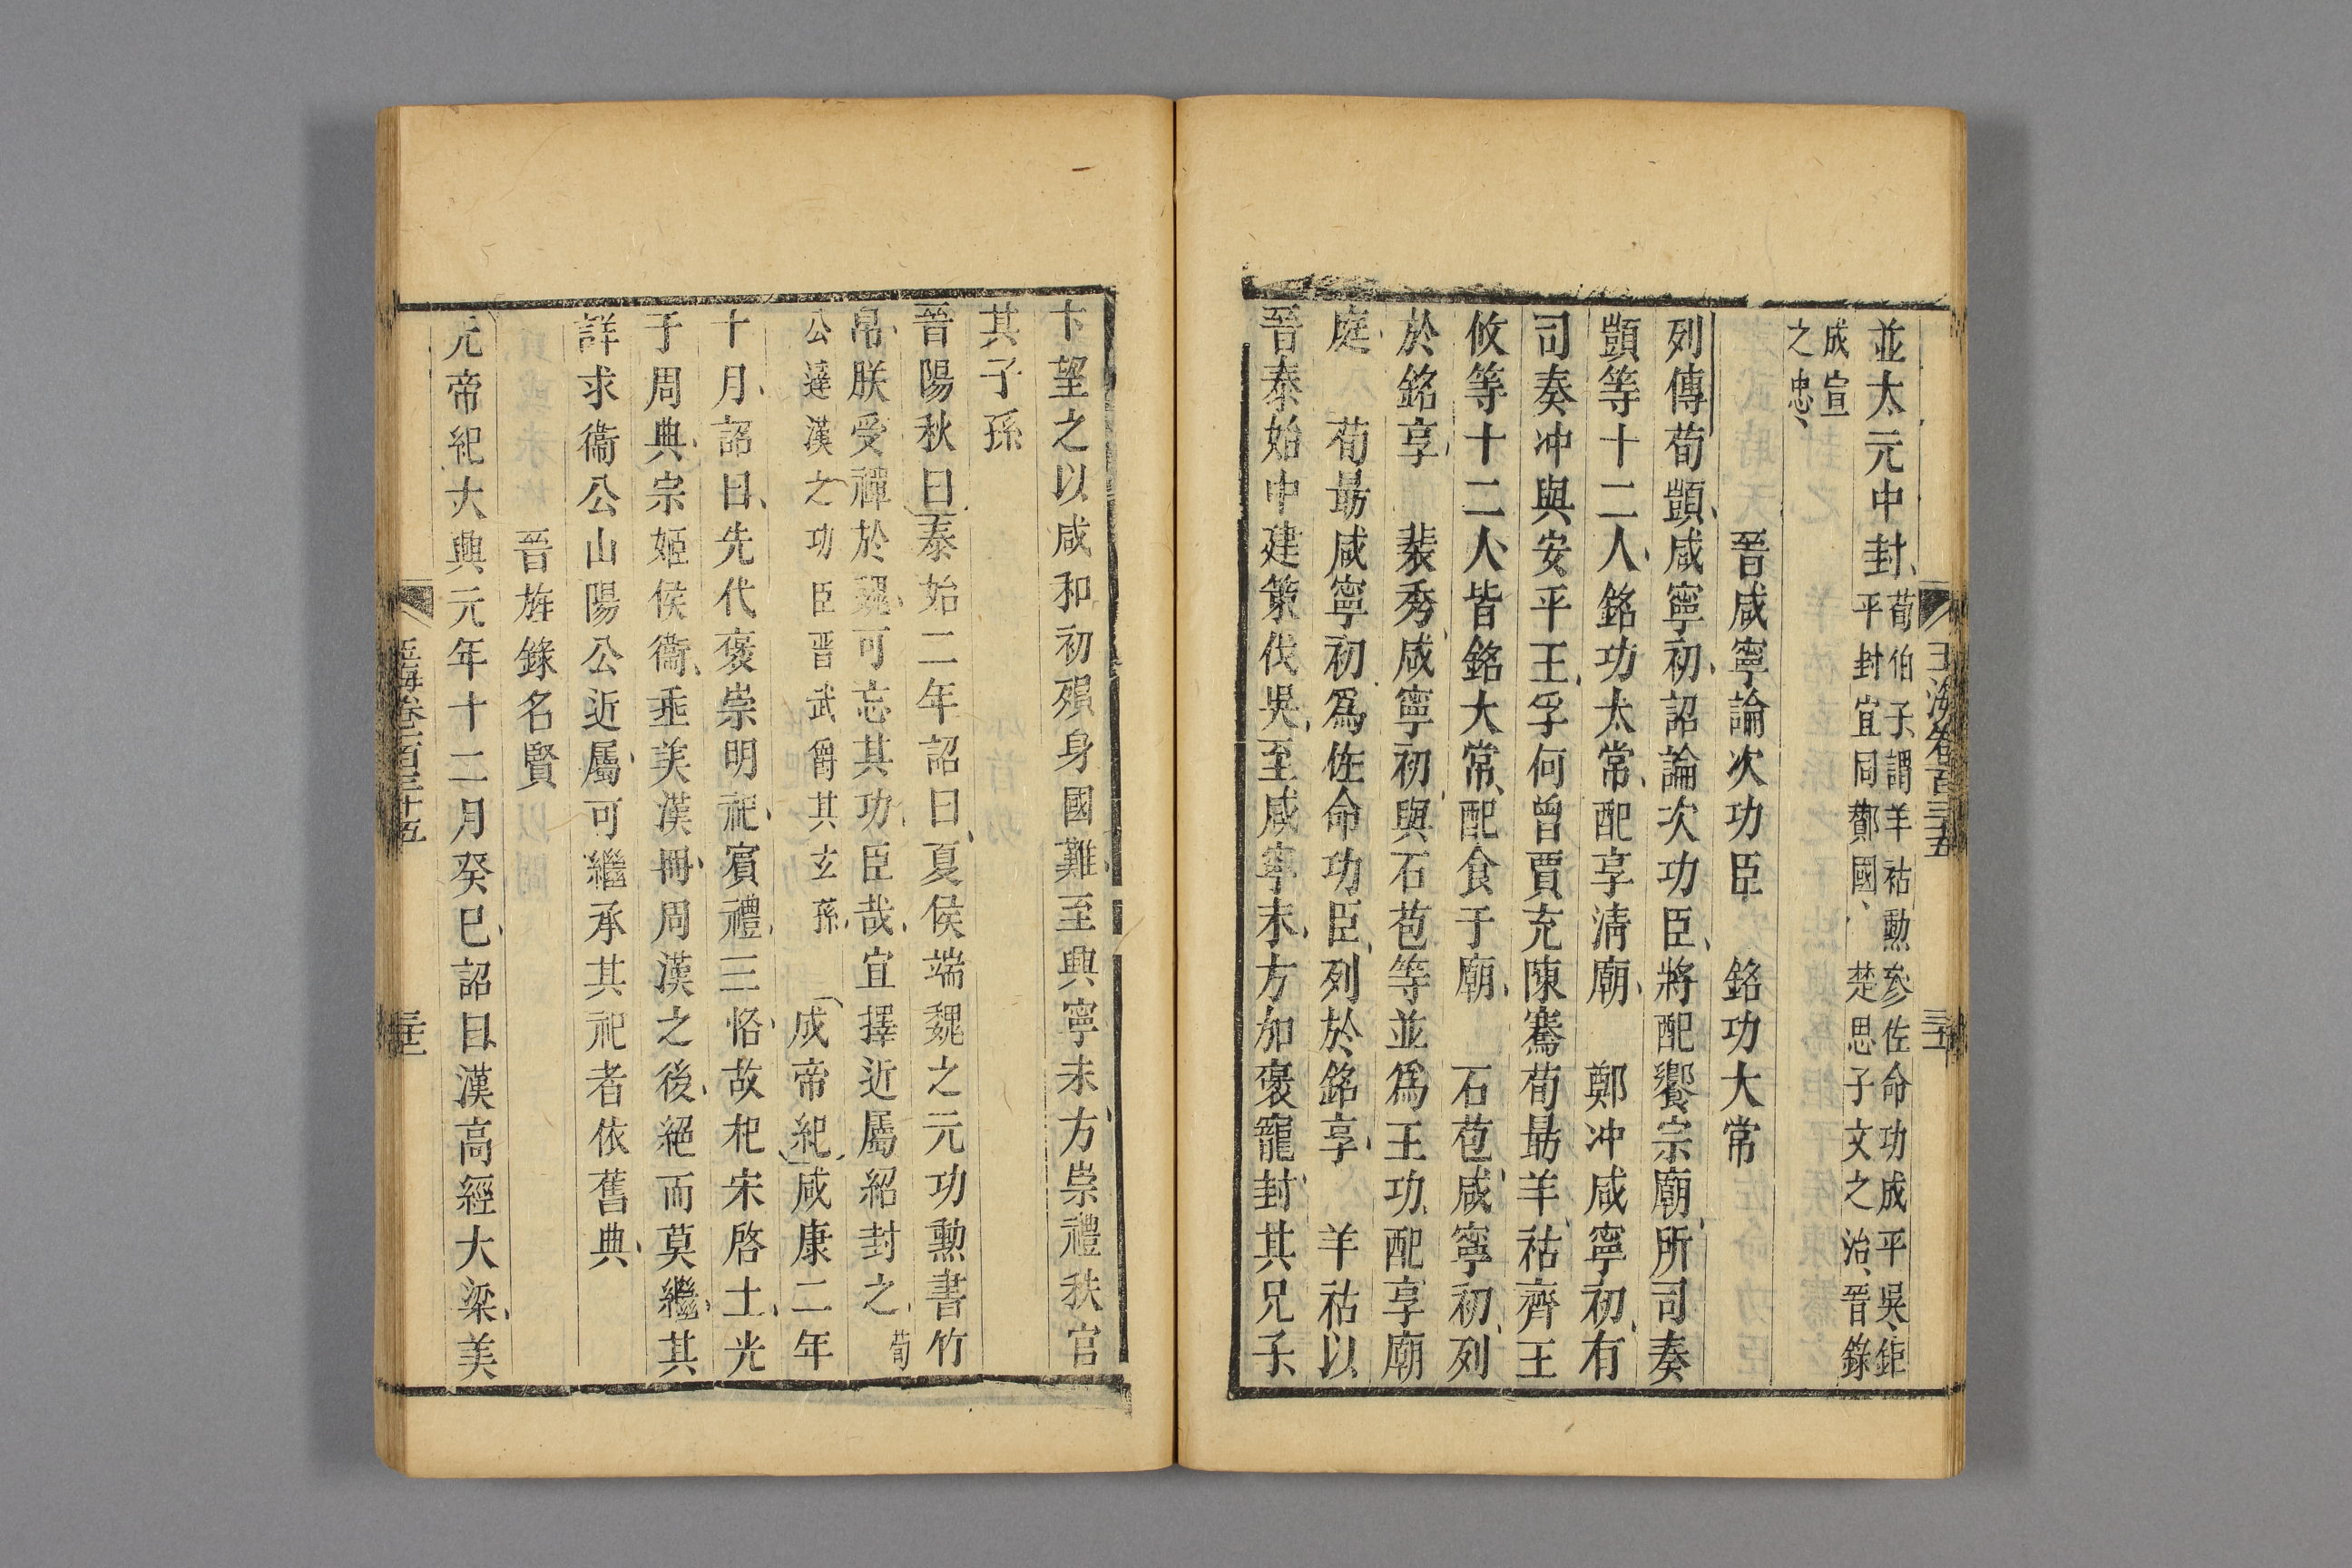 玉海卷百三十五
並太元中封荀伯子謂羊祜勳參佐命功成平吳鉅
平封宜同酇國楚思子文之治晉錄
成宣
之忠
晉咸寧論次功臣 銘功大常
列傳荀顗咸寧初詔論次功臣將配饗宗廟所司奏
顗等十二人銘功太常配享清廟 鄭冲咸寧初有
司奏冲與安平王孚何曾賈充陳騫荀勗羊祜齊王
攸等十二人皆銘大常配食于廟 石苞咸寧初列
於銘享 裴秀咸寧初與石苞等並為王功配享廟
庭 荀勗咸寧初為佐命功臣列於銘享 羊祜以
晉泰始中建策伐吳至咸寧末方加褒寵封其兄子
卞望之以咸和初殞身國難至興寧末方崇禮秩官
其子孫
晉陽秋曰泰始二年詔曰夏侯端魏之元功勳書竹
帛朕受禪於魏可忘其功臣哉宜擇近屬紹封之荀
公達漢之功臣晋武爵其玄孫 成帝紀咸康二年
十月詔曰先代褒崇明祀賓禮三恪故杞宋啓土光
于周典宗姬侯衞垂美漢冊周漢之後絕而莫繼其
詳求衞公山陽公近屬可繼承其祀者依舊典
晉旌錄名賢
元帝紀大興元年十二月癸巳詔曰漢高經大梁美
玉海卷百三十五